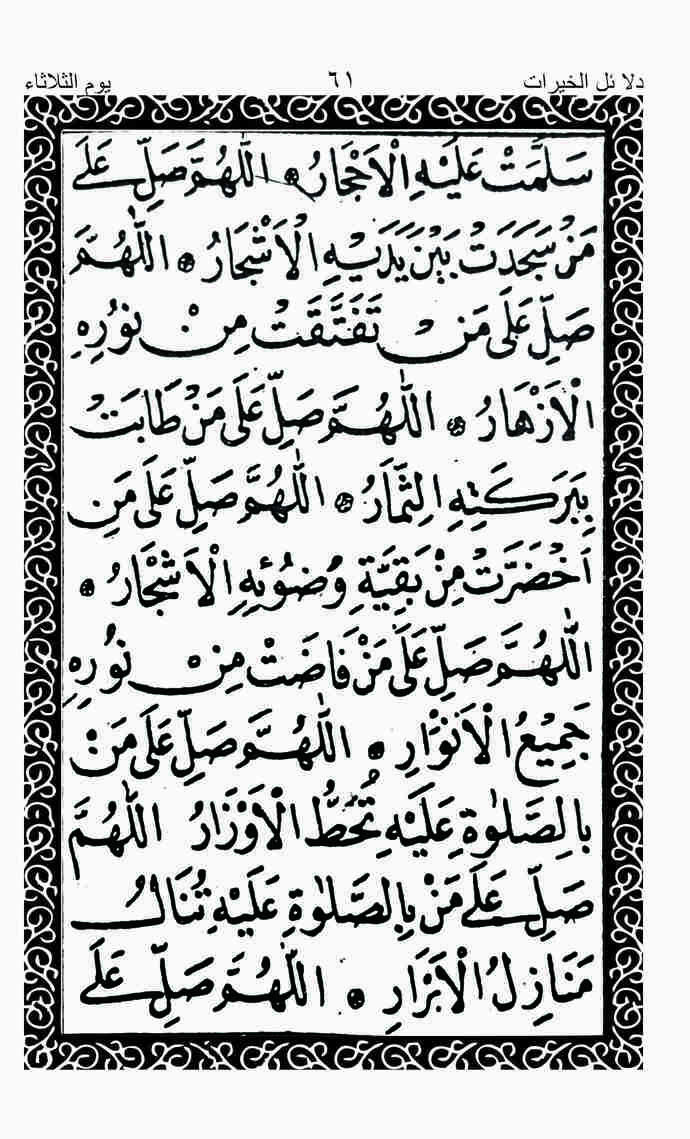 دلا ئل الخيرات ٦١ يوم الثلاثاء
سَلَّمَتْ عَلَيْهِ الْاَحْجَارُ ۞ اَللّٰهُمَّ صَلِّ عَلٰے
مَنْ سَجَدَتْ بَيْنَ يَدَيْهِ الْاَشْجَارُ ۞ اَللّٰهُمَّ
صَلِّ عَلَى مَنْ تَفَتَّقَتْ مِنْ نُوْرِهِ
الْاَزْهَارُ ۞ اَللّٰهُمَّ صَلِّ عَلَى مَنْ طَابَتْ
بِبَرَكَتِهِ الثِّمَارُ ۞ اَللّٰهُمَّ صَلِّ عَلَى مَنِ
اخْضَرَّتْ مِنْ بَقِيَّةِ وُضُوْئِهِ الْاَشْجَارُ ۞
اَللّٰهُمَّ صَلِّ عَلَى مَنْ فَاضَتْ مِنْ نُوْرِهِ
جَمِيْعُ الْاَنْوَارِ ۞ اَللّٰهُمَّ صَلِّ عَلَى مَنْ
بِالصَّلٰوةِ عَلَيْهِ تُحَطُّ الْاَوْزَارُ اَللّٰهُمَّ
صَلِّ عَلٰے مَنْ بِالصَّلٰوةِ عَلَيْهِ تُنَالُ
مَنَازِلُ الْاَبْرَارِ ۞ اَللّٰهُمَّ صَلِّ عَلٰے